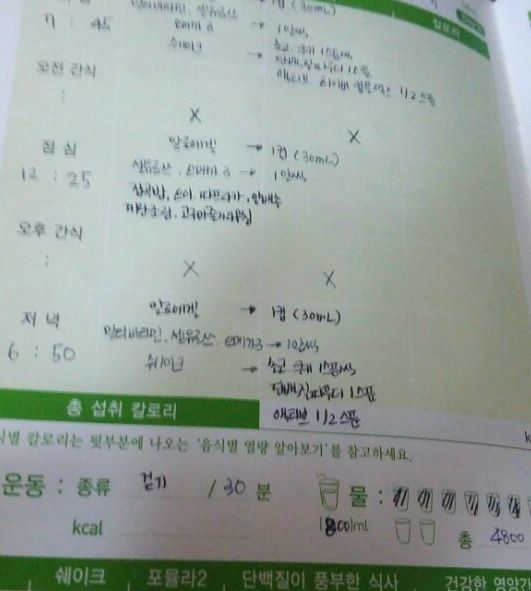 1컵 (30mL)
칼로리
멀티비타민, 셀유로스
오메가3 → 1알씩,
7 : 45
쉐이크 → 초코, 쿠키 1스푼씩,
단백질파우더 1스푼
액티브 화이버 컴플렉스 1/2스푼
오전 간식
:
X X
점심
알로에겔 → 1컵 (30mL)
셀유로스, 오메가3 → 1알씩,
12 : 25
잡곡밥, 오이 파프리카, 양배추
오후 간식
:
X X
저녁
알로에겔 → 1컵 (30mL)
멀티비타민, 셀유로스, 오메가3 → 1알씩,
6 : 50
쉐이크 → 초코 쿠키 1스푼씩,
단백질파우더 1스푼
액티브 1/2스푼
총 섭취 칼로리
식별 칼로리는 뒷부분에 나오는 '음식별 열량 알아보기'를 참고하세요.
운동 : 종류 걷기 / 30 분 물 :
kcal 800ml 총 4800
쉐이크 포뮬라2 단백질이 풍부한 식사 건강한 영양간